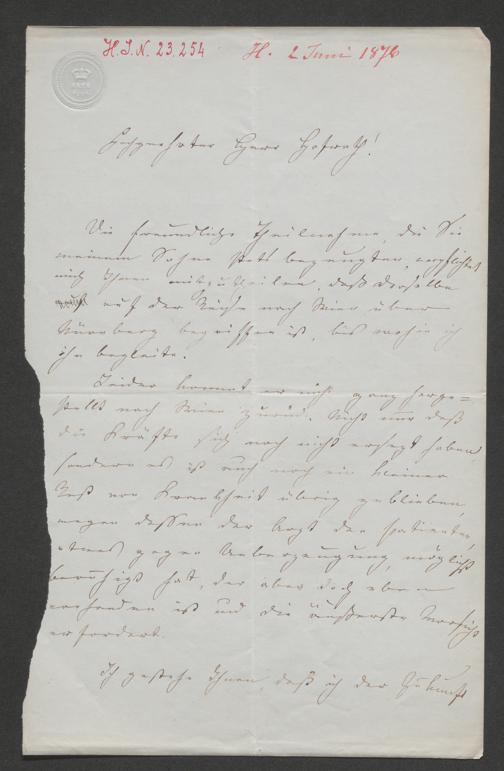 H.I.N. 23.254 H. 2 Juni 1876
Hochgeehrter Herr Hofrath!
Die freundliche Theilnahme, die Sie
meinem Sohne stets bezeugten, verpflichtet
mich Ihnen mitzutheilen, daß derselbe
auf der Reise nach Wien über
Nürnberg begriffen ist, bis wohin ich
ihn begleite.
Leider kommt er nicht ganz herge=
stellt nach Wien zurück. Nicht nur daß
die Kräfte sich noch nicht ersetzt haben,
sondern es ist auch noch ein kleiner
Rest von Krankheit übrig geblieben,
wegen dessen der Arzt den Patienten,
etwas gegen Ueberzeugung, möglichst
beruhigt hat, der aber doch eben
vorhanden ist und die äußerste Vorsicht
erfordert.
Ich gestehe Ihnen, daß ich der Zukunft